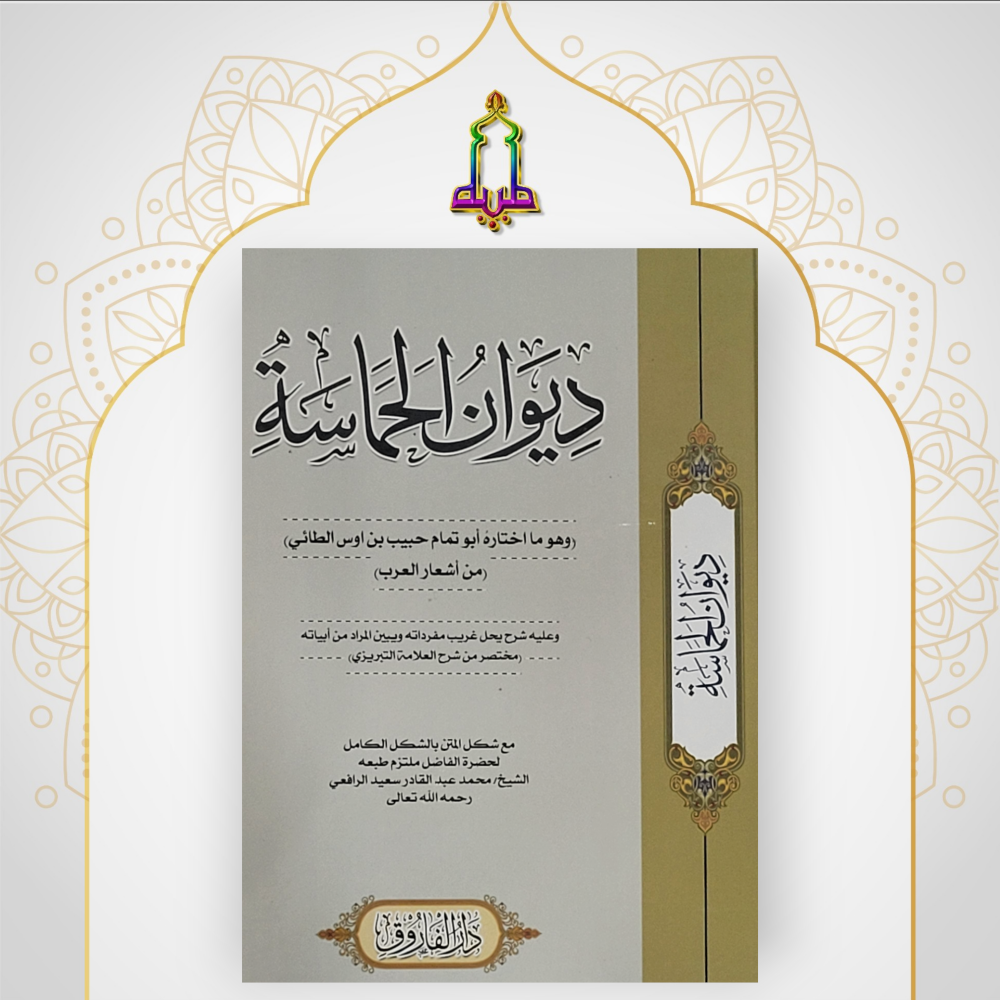 طيبة
دِيوَانُ الحَمَاسَةِ
(وهو ما اختاره أبو تمام حبيب بن اوس الطائي)
(من أشعار العرب)
وعليه شرح يحل غريب مفرداته ويبين المراد من أبياته
(مختصر من شرح العلامة التبريزي)
مع شكل المتن بالشكل الكامل
لحضرة الفاضل ملتزم طبعه
الشيخ/ محمد عبد القادر سعيد الرافعي
رحمه الله تعالى
دَارُ الفَارُوقِ
دِيوَانُ الحَمَاسَةِ